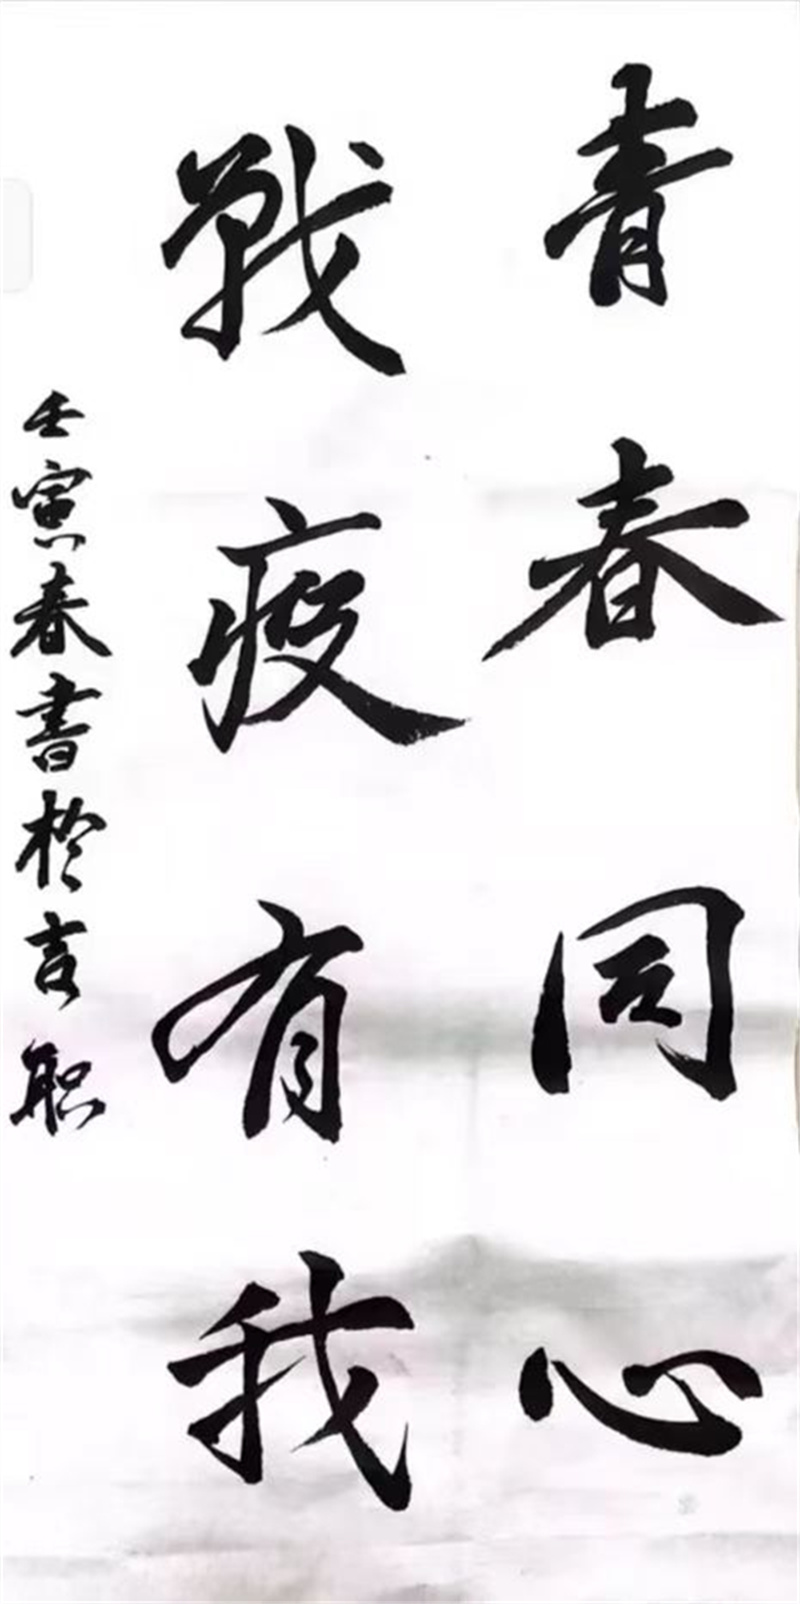 青春同心
戰疫有我
壬寅春書於言职